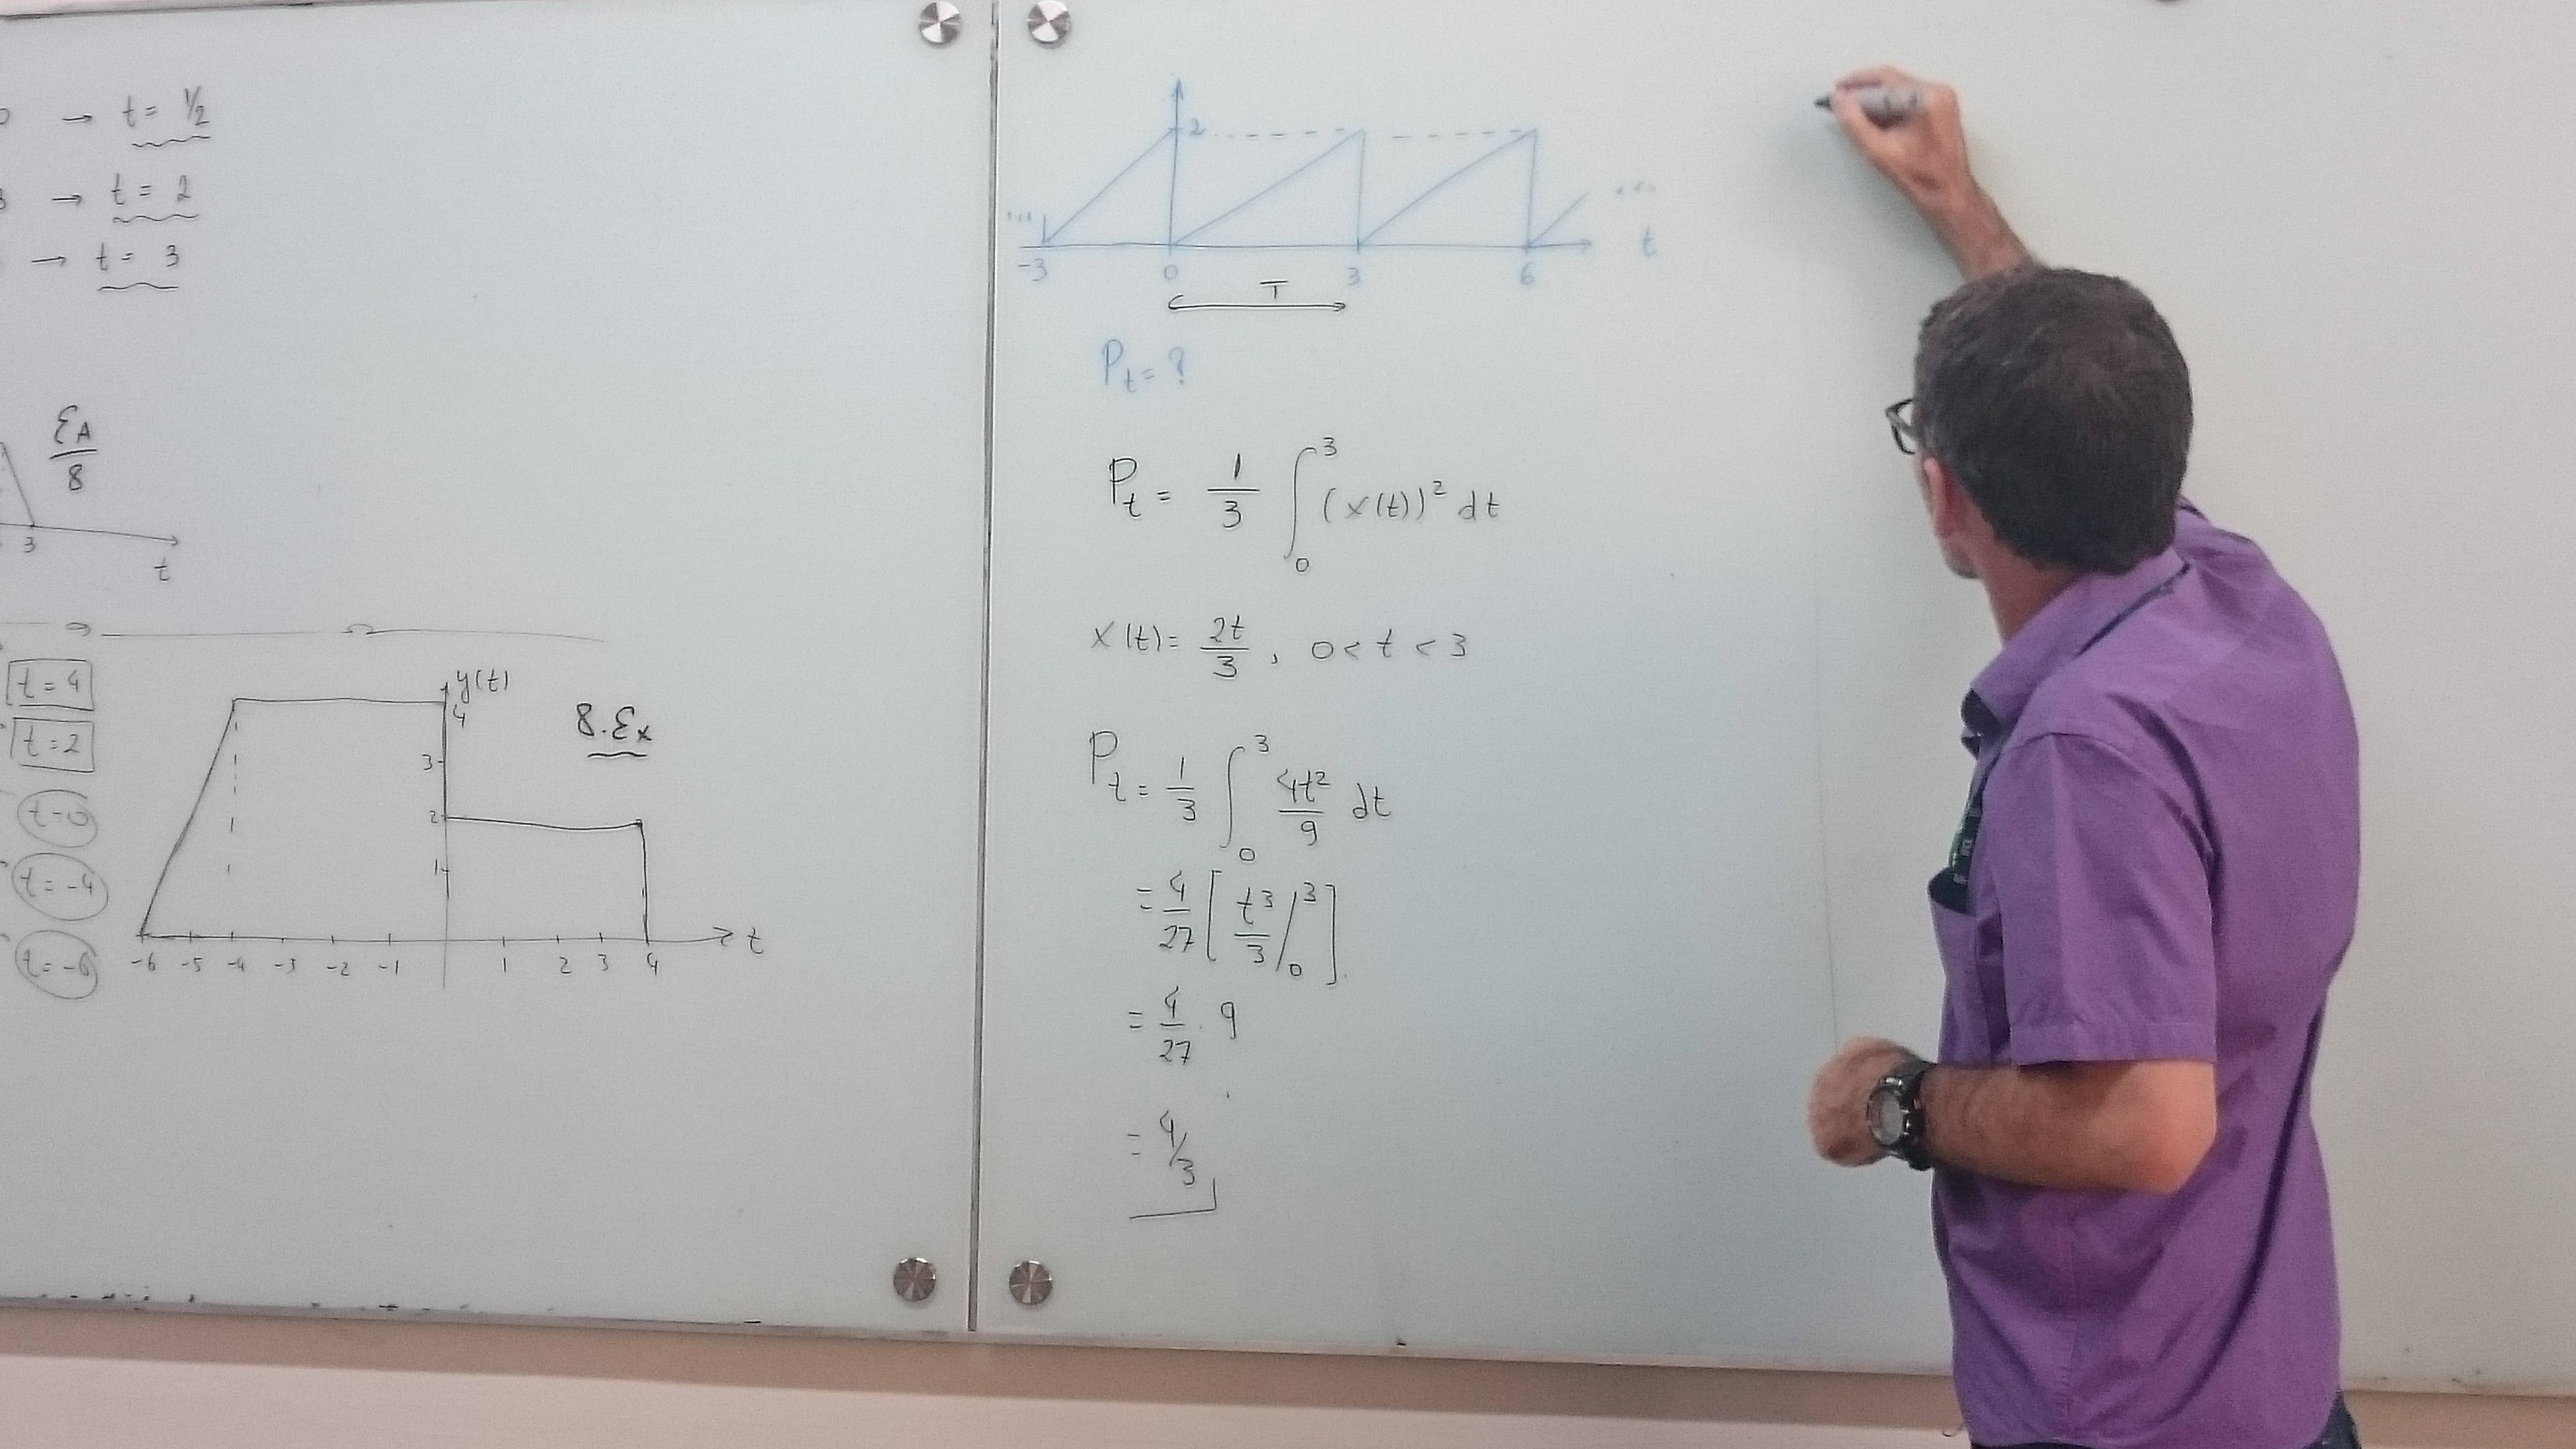 → t = 1/2
→ t = 2
→ t = 3
εA
8
3
t
t=4
t=2
t=0
t=-4
t=-6
y(t)
4
3
2
1
-6 -5 -4 -3 -2 -1 1 2 3 4 t
8.εx
2
... ...
-3 0 3 6 t
T
Pt = ?
Pt = 1/3 ∫₀³ (x(t))² dt
x(t) = 2t/3 , 0 < t < 3
Pt = 1/3 ∫₀³ 4t²/9 dt
= 4/27 [ t³/3 /₀³ ]
= 4/27 . 9
= 4/3